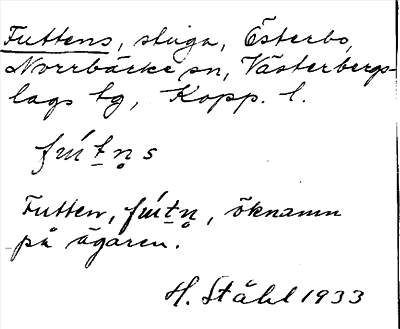 Futtens, stuga, Österbo,
Norrbärke sn, Västerbergs-
lags tg, Kopp. l.
fú t n s
Futten, fú t n, öknamn
på ägaren.
H. Ståhl 1933